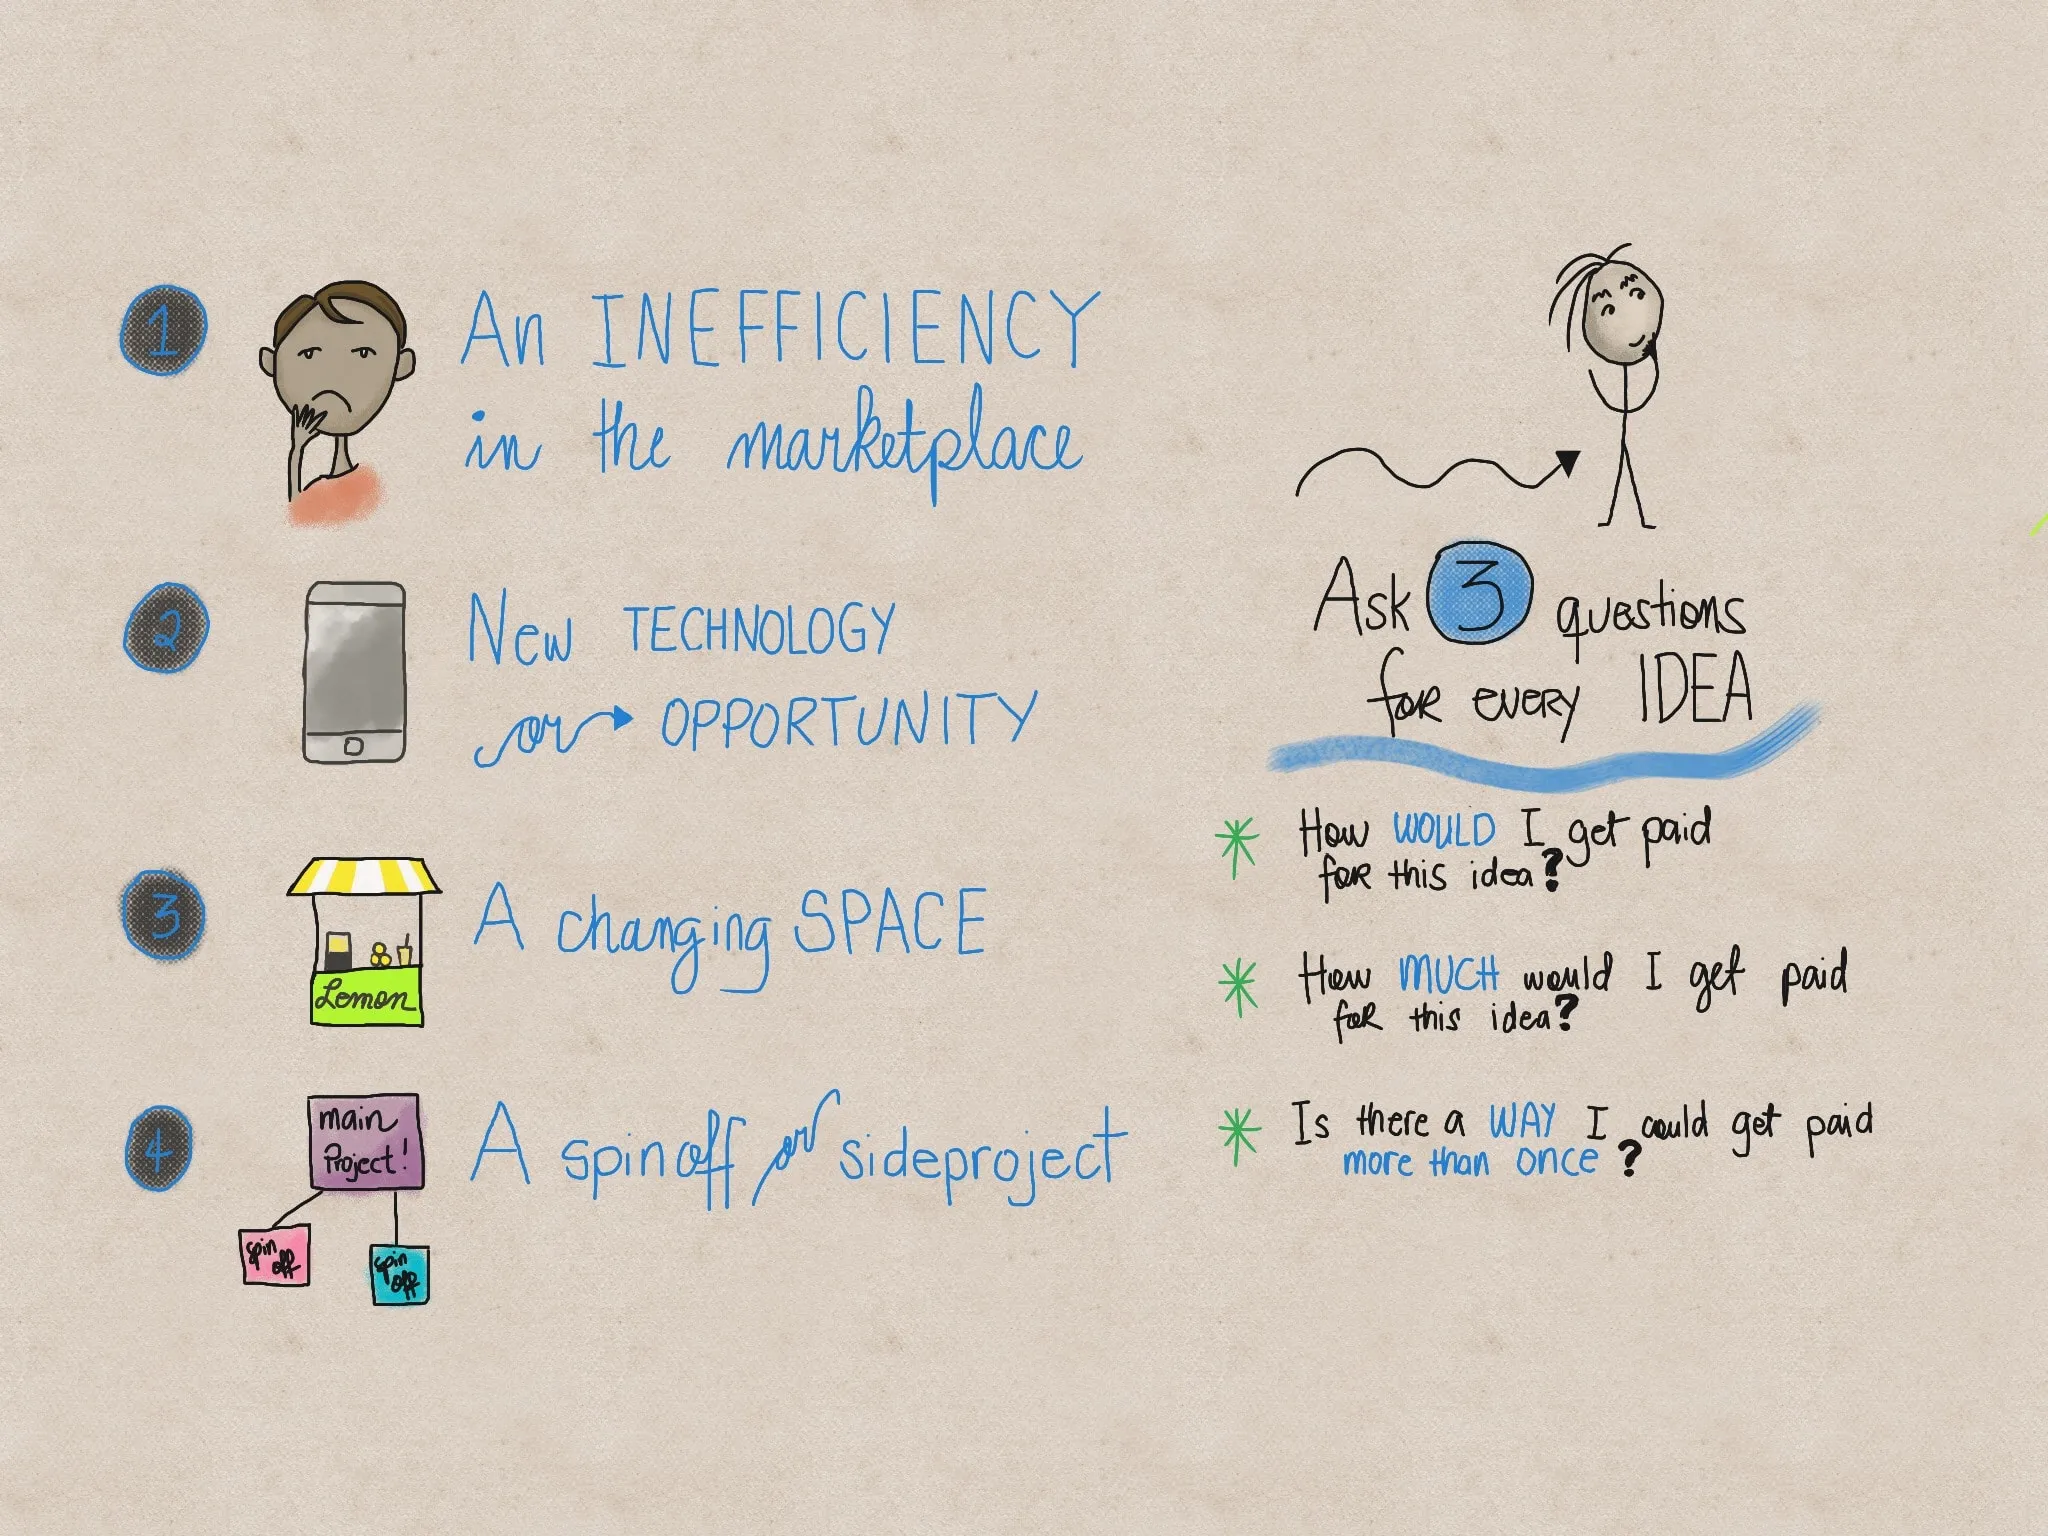 1
An INEFFICIENCY
in the marketplace
2
New TECHNOLOGY
or OPPORTUNITY
3
Lemon
A changing SPACE
4
main
Project!
spin
off
spin
off
A spinoff or sideproject
Ask 3 questions
for every IDEA
How WOULD I get paid
for this idea?
How MUCH would I get paid
for this idea?
Is there a WAY I could get paid
more than once?